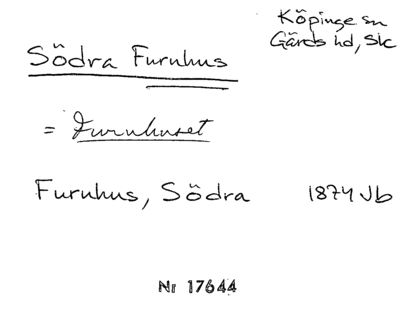 Köpinge sn
Gärds hd, Sk
Södra Furuhus
= Furuhuset
Furuhus, Södra 1874 Jb
Nr 17644